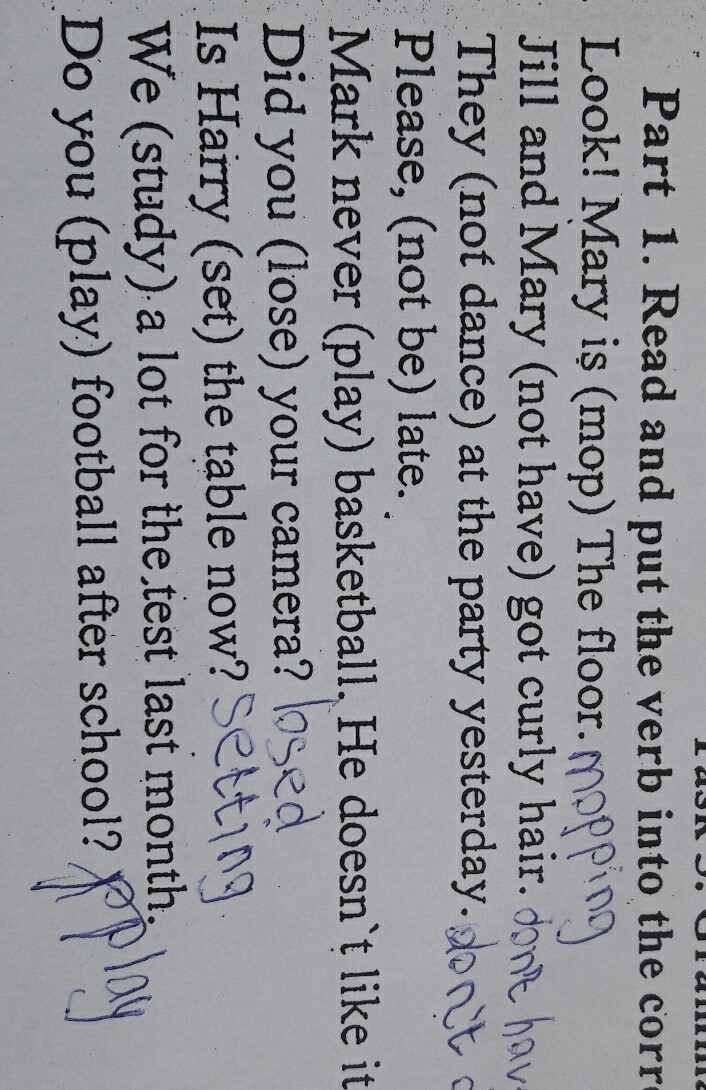 Part 1. Read and put the verb into the corr
Look! Mary is (mop) The floor. mopping
Jill and Mary (not have) got curly hair. don't hav
They (not dance) at the party yesterday. don't d
Please, (not be) late.
Mark never (play) basketball. He doesn`t like it
Did you (lose) your camera? losed
Is Harry (set) the table now? setting
We (study) a lot for the test last month.
Do you (play) football after school? play